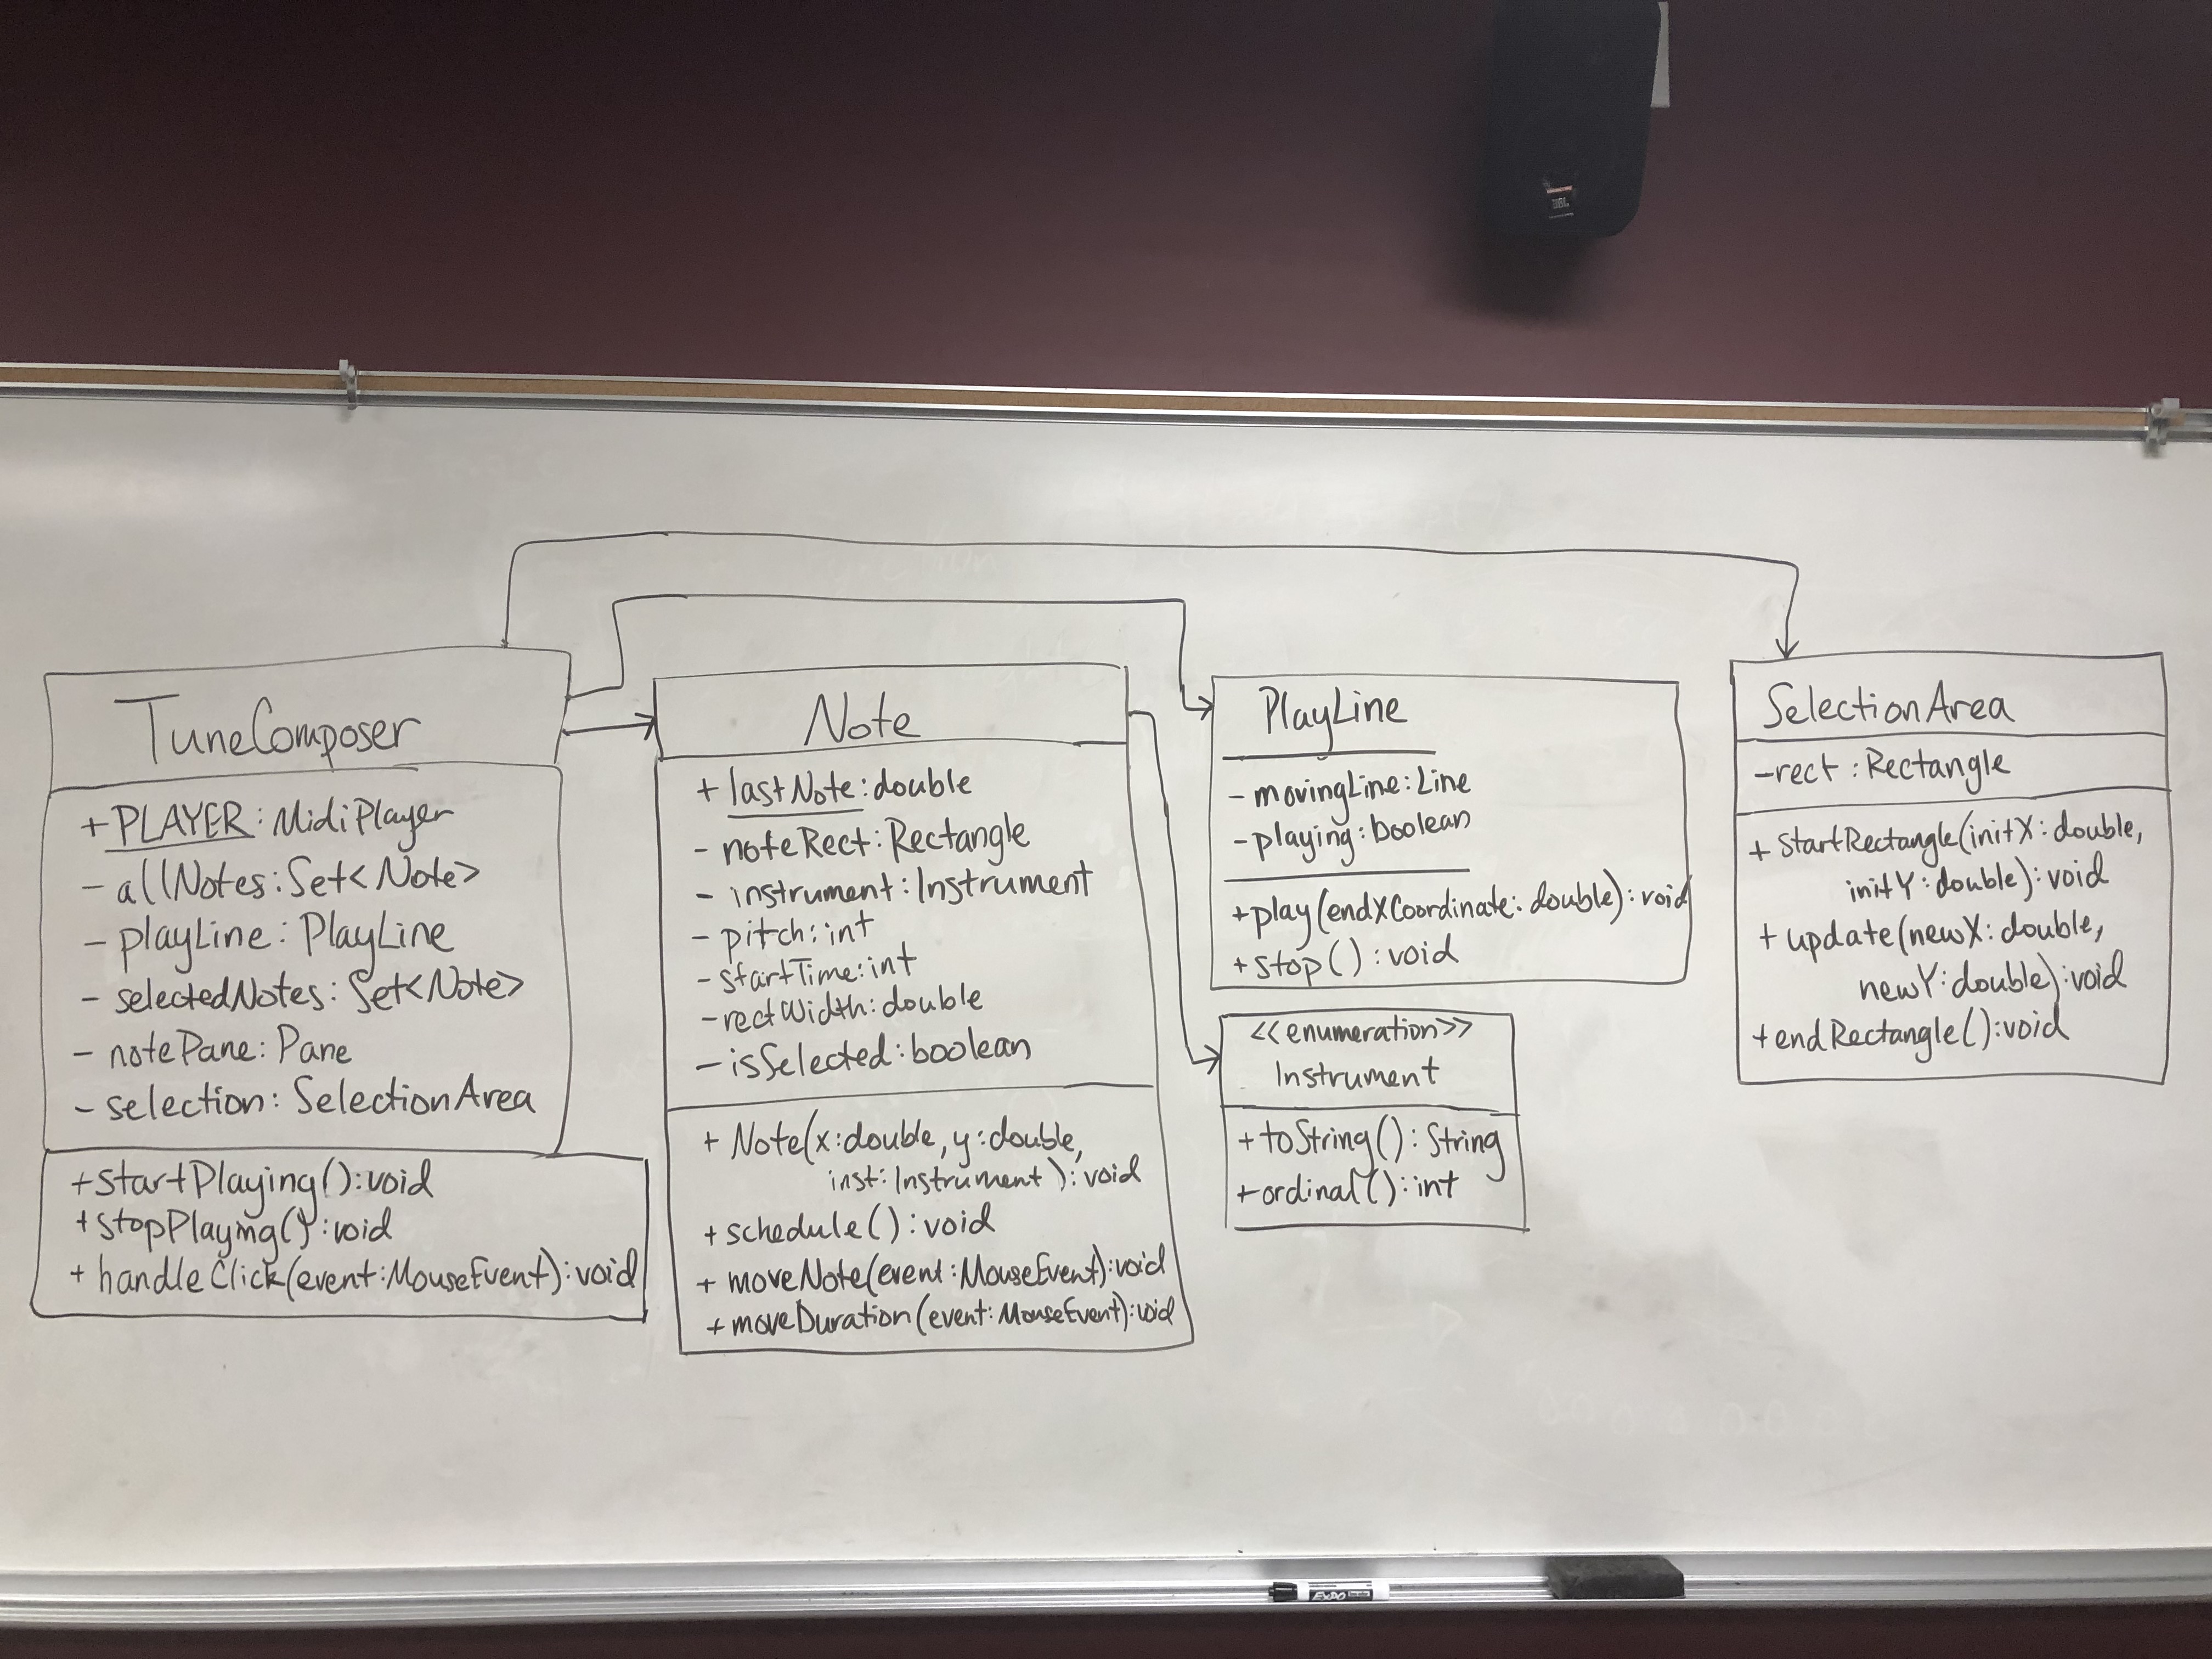 JBL
TuneComposer
+ PLAYER: MidiPlayer
- allNotes: Set<Note>
- playLine: PlayLine
- selectedNotes: Set<Note>
- notePane: Pane
- selection: SelectionArea
+startPlaying():void
+stopPlaying():void
+ handleClick(event:MouseEvent):void
Note
+ lastNote:double
- noteRect:Rectangle
- instrument:Instrument
- pitch:int
- startTime:int
- rectWidth:double
- isSelected:boolean
+ Note(x:double, y:double,
inst:Instrument):void
+ schedule():void
+ moveNote(event:MouseEvent):void
+ moveDuration(event:MouseEvent):void
PlayLine
- movingLine:Line
- playing:boolean
+play(endXCoordinate:double):void
+stop():void
<<enumeration>>
Instrument
+toString():String
+ordinal():int
SelectionArea
-rect:Rectangle
+ startRectangle(initX:double,
initY:double):void
+ update(newX:double,
newY:double):void
+endRectangle():void
EXPO